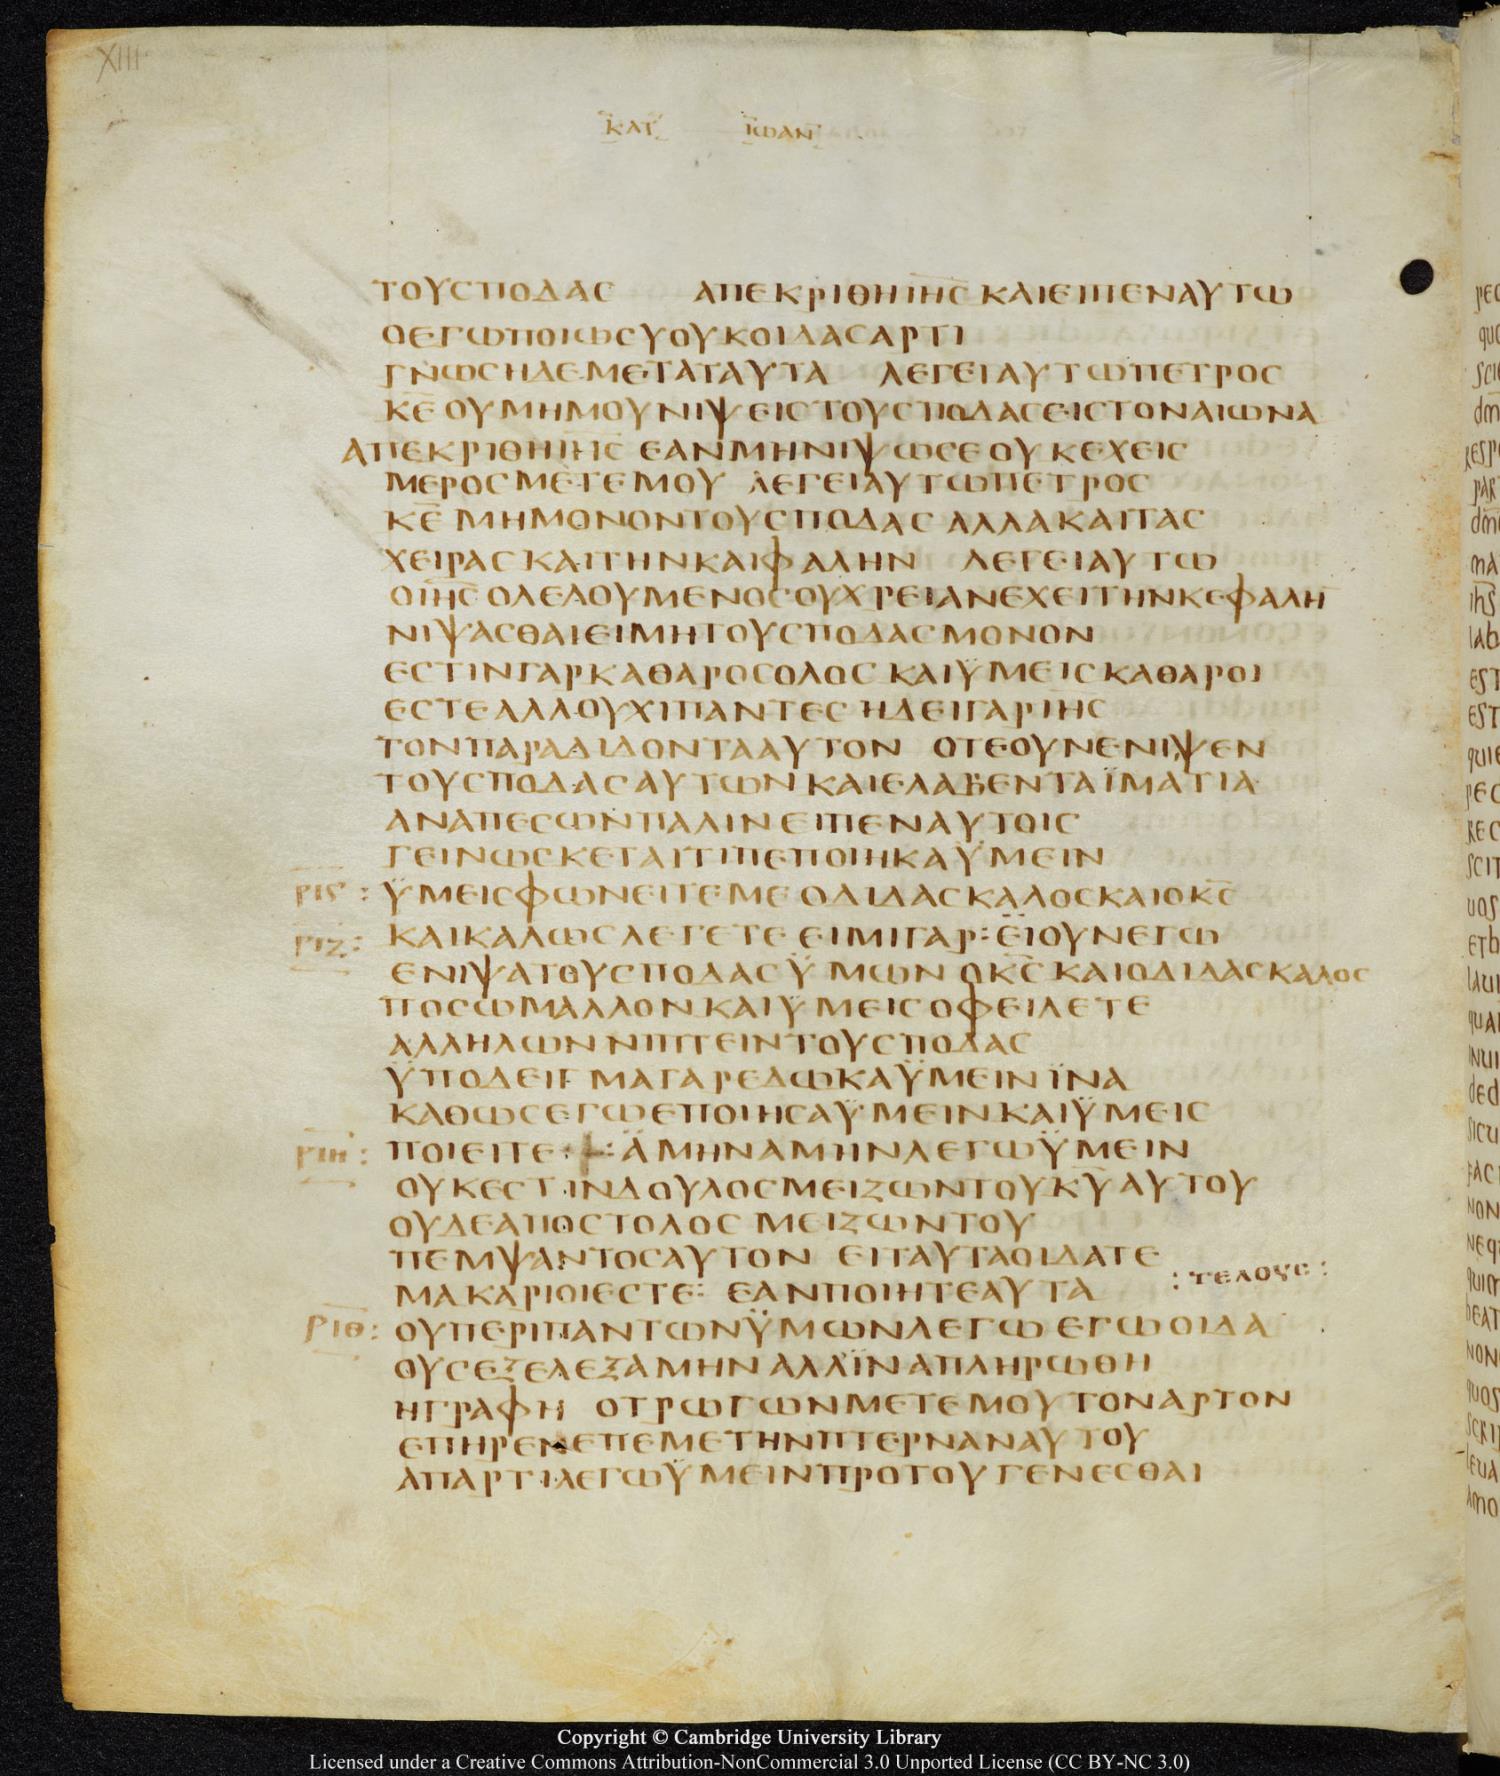 XIII
ΚΑΤ ΙΩΑΝ
ΤΟΥСΠΟΔΑС ΑΠΕΚΡΙΘΗΙΗС ΚΑΙΕΙΠΕΝΑΥΤΩ
ΟΕΓΩΠΟΙΩСΥΟΥΚΟΙΔΑСΑΡΤΙ
ΓΝΩСΗΔΕΜΕΤΑΤΑΥΤΑ ΛΕΓΕΙΑΥΤΩΠΕΤΡΟС
ΚΕ ΟΥΜΗΜΟΥΝΙΨΕΙСΤΟΥСΠΟΔΑСΕΙСΤΟΝΑΙΩΝΑ
ΑΠΕΚΡΙΘΗΙΗС ΕΑΝΜΗΝΙΨΩСΕ ΟΥΚΕΧΕΙС
ΜΕΡΟСΜΕΤΕΜΟΥ ΛΕΓΕΙΑΥΤΩΠΕΤΡΟС
ΚΕ ΜΗΜΟΝΟΝΤΟΥСΠΟΔΑС ΑΛΛΑΚΑΙΤΑС
ΧΕΙΡΑСΚΑΙΤΗΝΚΑΙΦΑΛΗΝ ΛΕΓΕΙΑΥΤΩ
ΟΙΗСΟΛΕΛΟΥΜΕΝΟСΟΥΧΡΕΙΑΝΕΧΕΙΤΗΝΚΕΦΑΛΗ
ΝΙΨΑСΘΑΙΕΙΜΗΤΟΥСΠΟΔΑСΜΟΝΟΝ
ΕСΤΙΝΓΑΡΚΑΘΑΡΟСΟΛΟС ΚΑΙΫΜΕΙСΚΑΘΑΡΟΙ
ΕСΤΕΑΛΛΟΥΧΙΠΑΝΤΕС ΗΔΕΙΓΑΡΙΗС
ΤΟΝΠΑΡΑΔΙΔΟΝΤΑΑΥΤΟΝ ΟΤΕΟΥΝΕΝΙΨΕΝ
ΤΟΥСΠΟΔΑСΑΥΤΩΝΚΑΙΕΛΑΒΕΝΤΑΪΜΑΤΙΑ
ΑΝΑΠΕСΩΝΠΑΛΙΝΕΙΠΕΝΑΥΤΟΙС
ΓΕΙΝΩСΚΕΤΑΙΤΙΠΕΠΟΙΗΚΑΫΜΕΙΝ
ΡΙϚ : ΫΜΕΙСΦΩΝΕΙΤΕΜΕ ΟΔΙΔΑСΚΑΛΟСΚΑΙΟΚС
ΡΙΖ: ΚΑΙΚΑΛΩСΛΕΓΕΤΕ ΕΙΜΙΓΑΡ:ΕΙΟΥΝΕΓΩ
ΕΝΙΨΑΤΟΥСΠΟΔΑСΫΜΩΝ ΟΚС ΚΑΙΟΔΙΔΑСΚΑΛΟС
ΠΟСΩΜΑΛΛΟΝΚΑΙΫΜΕΙСΟΦΕΙΛΕΤΕ
ΑΛΛΗΛΩΝΝΙΠΤΕΙΝΤΟΥСΠΟΔΑС
ΫΠΟΔΕΙΓΜΑΓΑΡΕΔΩΚΑΫΜΕΙΝΪΝΑ
ΚΑΘΩСΕΓΩΕΠΟΙΗСΑΫΜΕΙΝΚΑΙΫΜΕΙС
ΡΙΗ : ΠΟΙΕΙΤΕ:+:ΑΜΗΝΑΜΗΝΛΕΓΩΫΜΕΙΝ
ΟΥΚΕСΤΙΝΔΟΥΛΟСΜΕΙΖΩΝΤΟΥΚΥΑΥΤΟΥ
ΟΥΔΕΑΠΟСΤΟΛΟС ΜΕΙΖΩΝΤΟΥ
ΠΕΜΨΑΝΤΟСΑΥΤΟΝ ΕΙΤΑΥΤΑΟΙΔΑΤΕ
ΜΑΚΑΡΙΟΙΕСΤΕ: ΕΑΝΠΟΙΗΤΕΑΥΤΑ : ΤΕΛΟΥС :
ΡΙΘ: ΟΥΠΕΡΙΠΑΝΤΩΝΫΜΩΝΛΕΓΩ ΕΓΩΟΙΔΑ
ΟΥСΕΞΕΛΕΞΑΜΗΝΑΛΛΪΝΑΠΛΗΡΩΘΗ
ΗΓΡΑΦΗ ΟΤΡΩΓΩΝΜΕΤΕΜΟΥΤΟΝΑΡΤΟΝ
ΕΠΗΡΕΝΕΠΕΜΕΤΗΝΠΤΕΡΝΑΝΑΥΤΟΥ
ΑΠΑΡΤΙΛΕΓΩΫΜΕΙΝΠΡΟΤΟΥΓΕΝΕСΘΑΙ
Copyright © Cambridge University Library
Licensed under a Creative Commons Attribution-NonCommercial 3.0 Unported License (CC BY-NC 3.0)